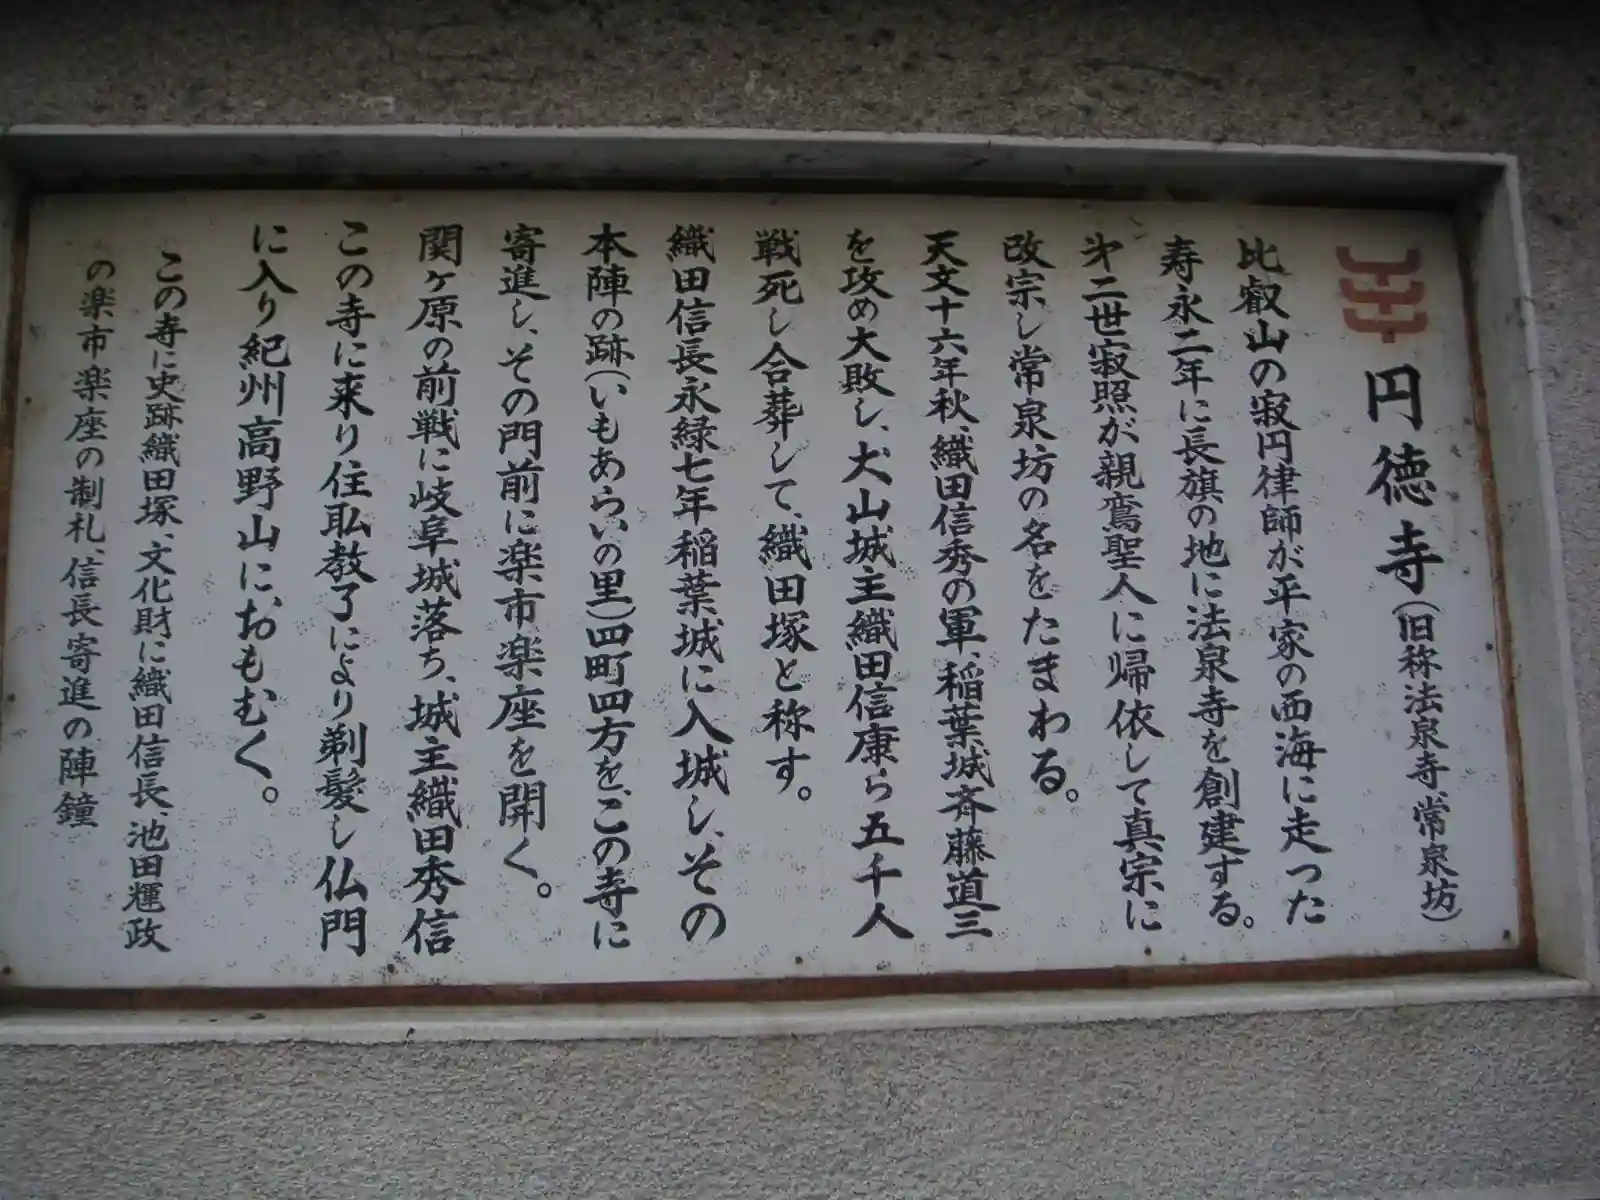 円徳寺(旧称法泉寺、常泉坊)
比叡山の寂円律師が平家の西海に走った
寿永二年に長旗の地に法泉寺を創建する。
㐧二世寂照が親鸞聖人に帰依して真宗に
改宗し常泉坊の名をたまわる。
天文十六年秋、織田信秀の軍、稲葉城斉藤道三
を攻め大敗し、犬山城主織田信康ら五千人
戦死し合葬して、織田塚と称す。
織田信長永緑七年稲葉城に入城し、その
本陣の跡(いもあらいの里)四町四方を、この寺に
寄進し、その門前に楽市楽座を開く。
関ヶ原の前戦に岐阜城落ち、城主織田秀信
この寺に来り住耺教了により剃髪し仏門
に入り紀州高野山に、おもむく。
この寺に史跡織田塚、文化財に織田信長、池田輝政
の楽市楽座の制札、信長寄進の陣鐘